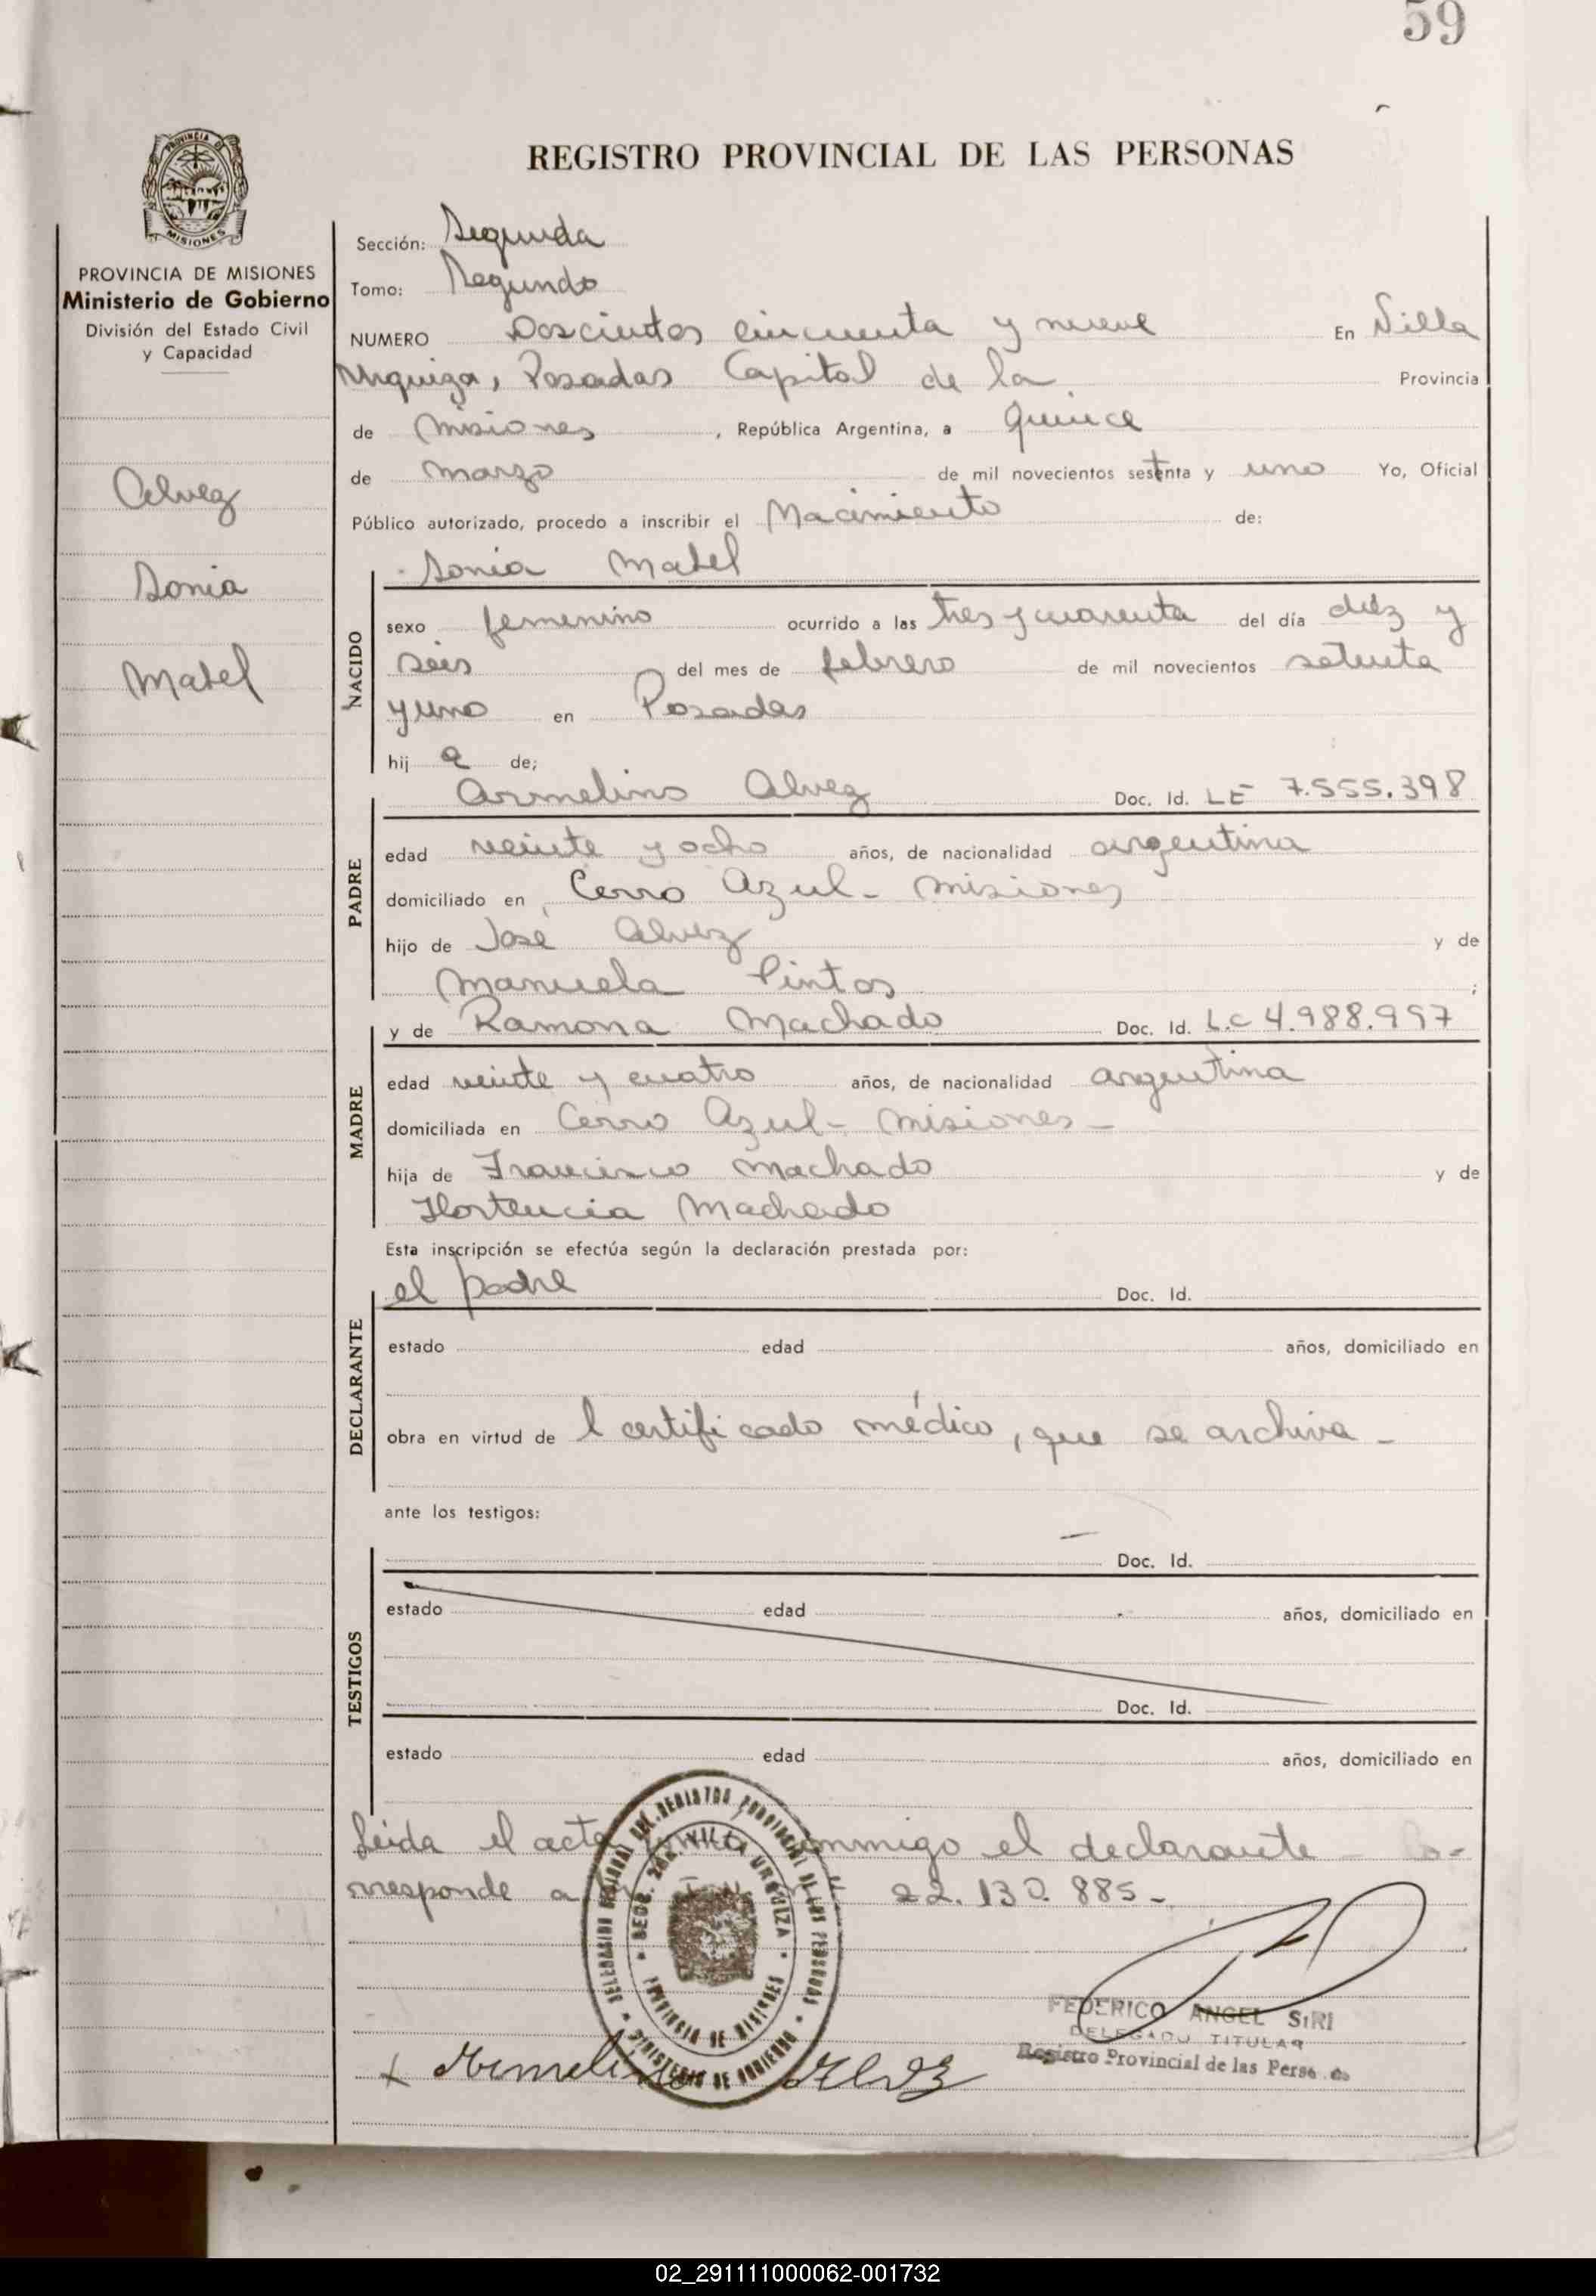 59
PROVINCIA DE
MISIONES
REGISTRO PROVINCIAL DE LAS PERSONAS
PROVINCIA DE MISIONES
Ministerio de Gobierno
División del Estado Civil
y Capacidad
Alvez
Sonia
Mabel
Sección: Segunda
Tomo: Segundo
NUMERO Doscientos cincuenta y nueve En Villa
Urquiza, Posadas Capital de la Provincia
de Misiones, República Argentina, a quince
de marzo de mil novecientos setenta y uno Yo, Oficial
Público autorizado, procedo a inscribir el Nacimiento de:
Sonia Mabel
NACIDO
sexo femenino ocurrido a las tres y cuarenta del día diéz y
seis del mes de febrero de mil novecientos setenta
y uno en Posadas
hij a de;
Armelino Alvez Doc. Id. LE 7.555.398
PADRE
edad veinte y ocho años, de nacionalidad argentina
domiciliado en Cerro Azul - Misiones
hijo de José Alvez y de
Manuela Pintos ;
y de Ramona Machado Doc. Id. L.C 4.988.997
MADRE
edad veinte y cuatro años, de nacionalidad argentina
domiciliada en Cerro Azul - Misiones -
hija de Francisco Machado y de
Hortencia Machado
Esta inscripción se efectúa según la declaración prestada por:
el padre Doc. Id.
DECLARANTE
estado edad años, domiciliado en
obra en virtud de l certificado médico, que se archiva -
ante los testigos:
Doc. Id.
TESTIGOS
estado edad años, domiciliado en
Doc. Id.
estado edad años, domiciliado en
Leida el acta firma conmigo el declarante - Co-
rresponde a 22.130.885 -
DELEGACION REGIONAL DEL REGISTRO PROVINCIAL DE LAS PERSONAS
MINISTERIO DE GOBIERNO
SECC. 2da. VILLA URQUIZA
PROVINCIA DE MISIONES
FEDERICO ANGEL SIRI
DELEGADO TITULAR
Registro Provincial de las Perso
x Armelino Alvez
02_291111000062-001732